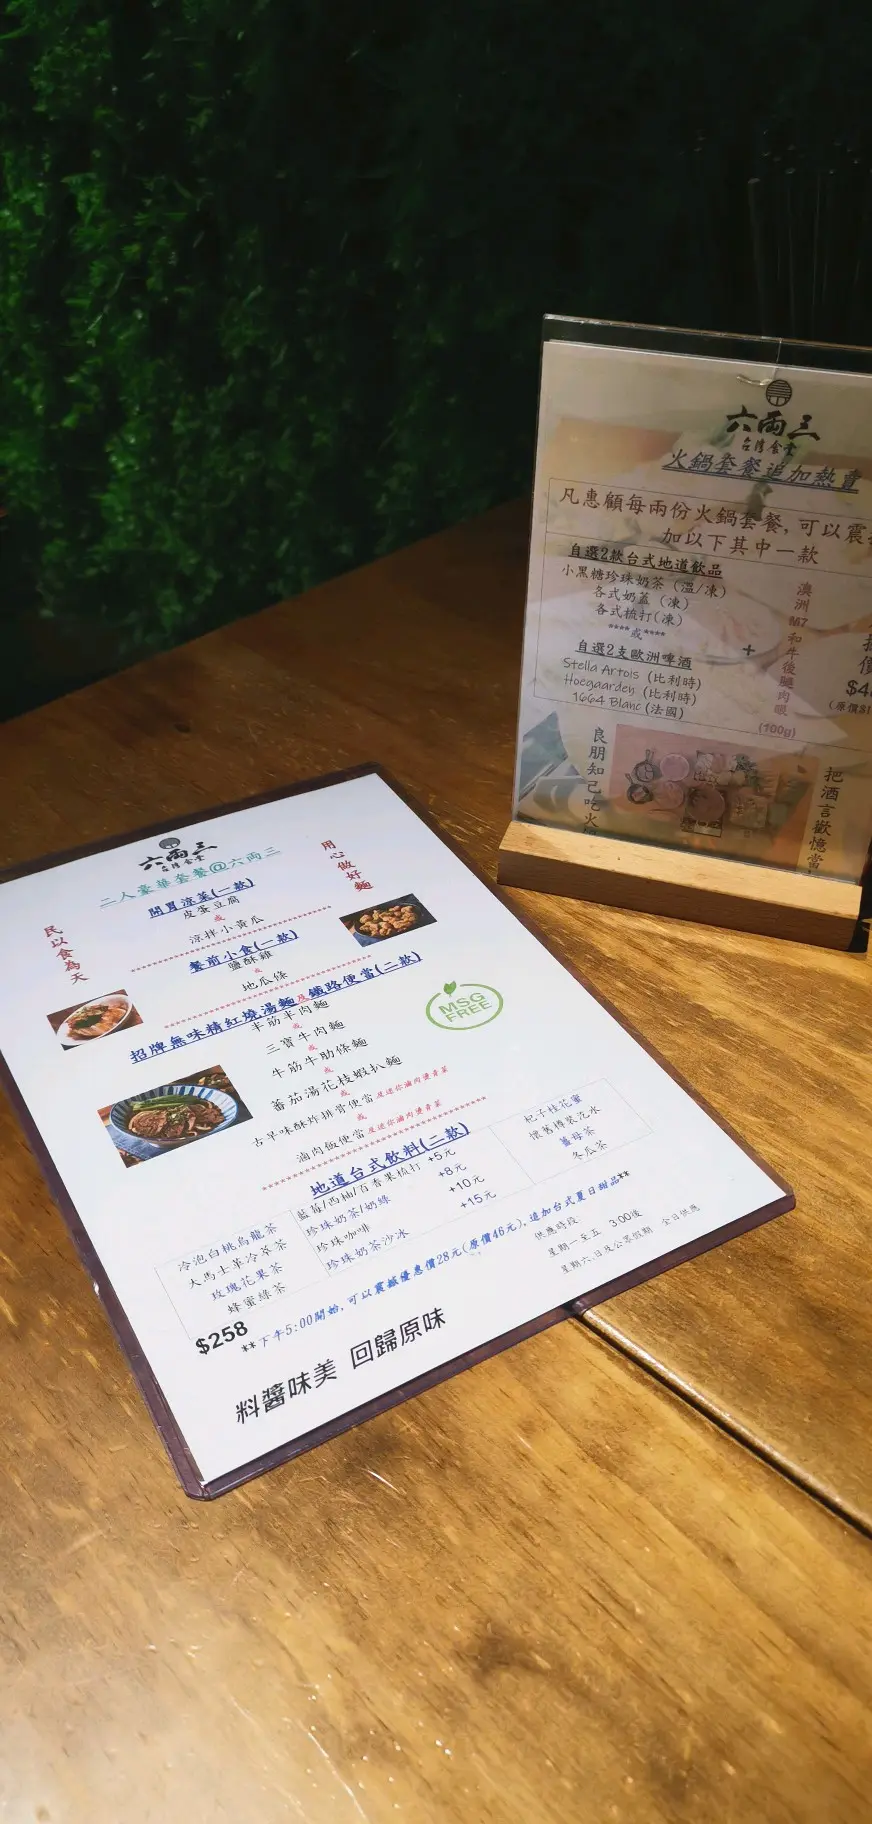 六兩三
台灣食堂
二人豪華套餐@六兩三
用心做好麵
民以食為天
開胃涼菜(一款)
皮蛋豆腐
或
涼拌小黃瓜
餐前小食(一款)
鹽酥雞
或
地瓜條
招牌無味精紅燒湯麵及鐵路便當(二款)
半筋半肉麵
或
三寶牛肉麵
或
牛筋牛肋條麵
或
番茄湯花枝蝦扒麵
或
古早味酥炸排骨便當及迷你滷肉燙青菜
或
滷肉飯便當及迷你滷肉燙青菜
MSG
FREE
地道台式飲料(二款)
冷泡白桃烏龍茶
大馬士革冷萃茶
玫瑰花果茶
蜂蜜綠茶
藍莓/西柚/百香果梳打 +5元
珍珠奶茶/奶綠 +8元
珍珠咖啡 +10元
珍珠奶茶沙冰 +15元
杞子桂花蜜
懷舊樽裝汽水
薑母茶
冬瓜茶
$258
**下午5:00開始, 可以震撼優惠價28元(原價46元), 追加台式夏日甜品**
供應時段
星期一至五 3:00後
星期六,日及公眾假期 全日供應
料醬味美 回歸原味
六兩三
台灣食堂
火鍋套餐追加熱賣
凡惠顧每兩份火鍋套餐, 可以震
加以下其中一款
自選2款台式地道飲品
小黑糖珍珠奶茶 (溫/凍)
各式奶蓋 (凍)
各式梳打(凍)
****或****
自選2支歐洲啤酒
Stella Artois (比利時)
Hoegaarden (比利時)
1664 Blanc (法國)
+
澳洲M7和牛後腿肉眼
(100g)
$4
(原價$1
良朋知己吃火
把酒言歡憶當